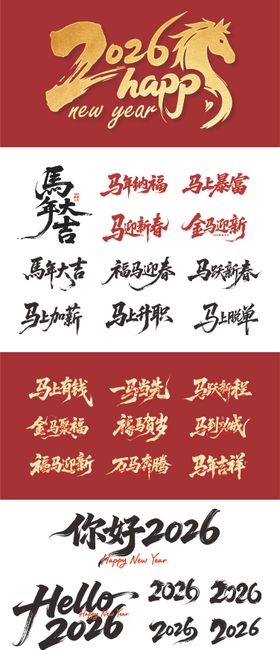 2026
happy
new year
馬年大吉
马年纳福
马上暴富
马迎新春
金马迎新
馬年大吉
福马迎春
马跃新春
马上加薪
马上升职
马上脱单
马上有钱
一马当先
马跃新程
金马聚福
福马贺岁
马到功成
福马迎新
万马奔腾
马年吉祥
你好2026
Happy New Year
Hello
Happy New Year
2026
2026
2026
2026
2026